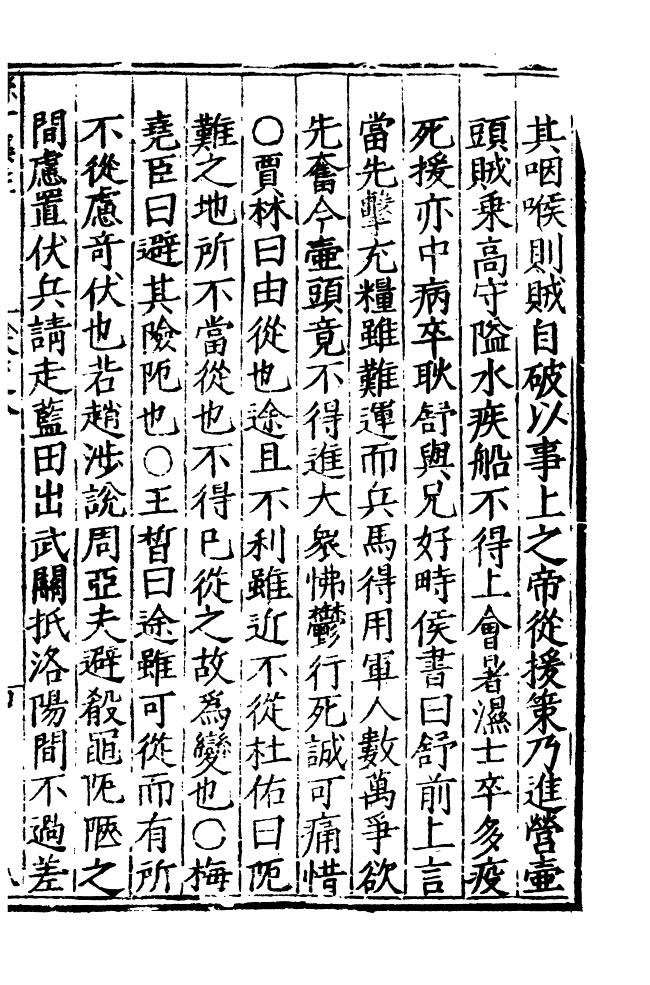 其咽喉則賊自破以事上之帝從援策乃進營壷
頭賊乗高守隘水疾船不得上會暑濕士卒多疫
死援亦中病卒耿舒與兄好畤侯書曰舒前上言
當先擊充糧雖難運而兵馬得用軍人數萬爭欲
先奮今壷頭竟不得進大衆怫鬱行死誠可痛惜
○賈林曰由從也途且不利雖近不從杜佑曰阨
難之地所不當從也不得已從之故爲變也○梅
堯臣曰避其險阨也○王晳曰途雖可從而有所
不從慮竒伏也若趙涉說周亞夫避殽黽阨陿之
間慮置伏兵請走藍田出武關抵洛陽間不過差